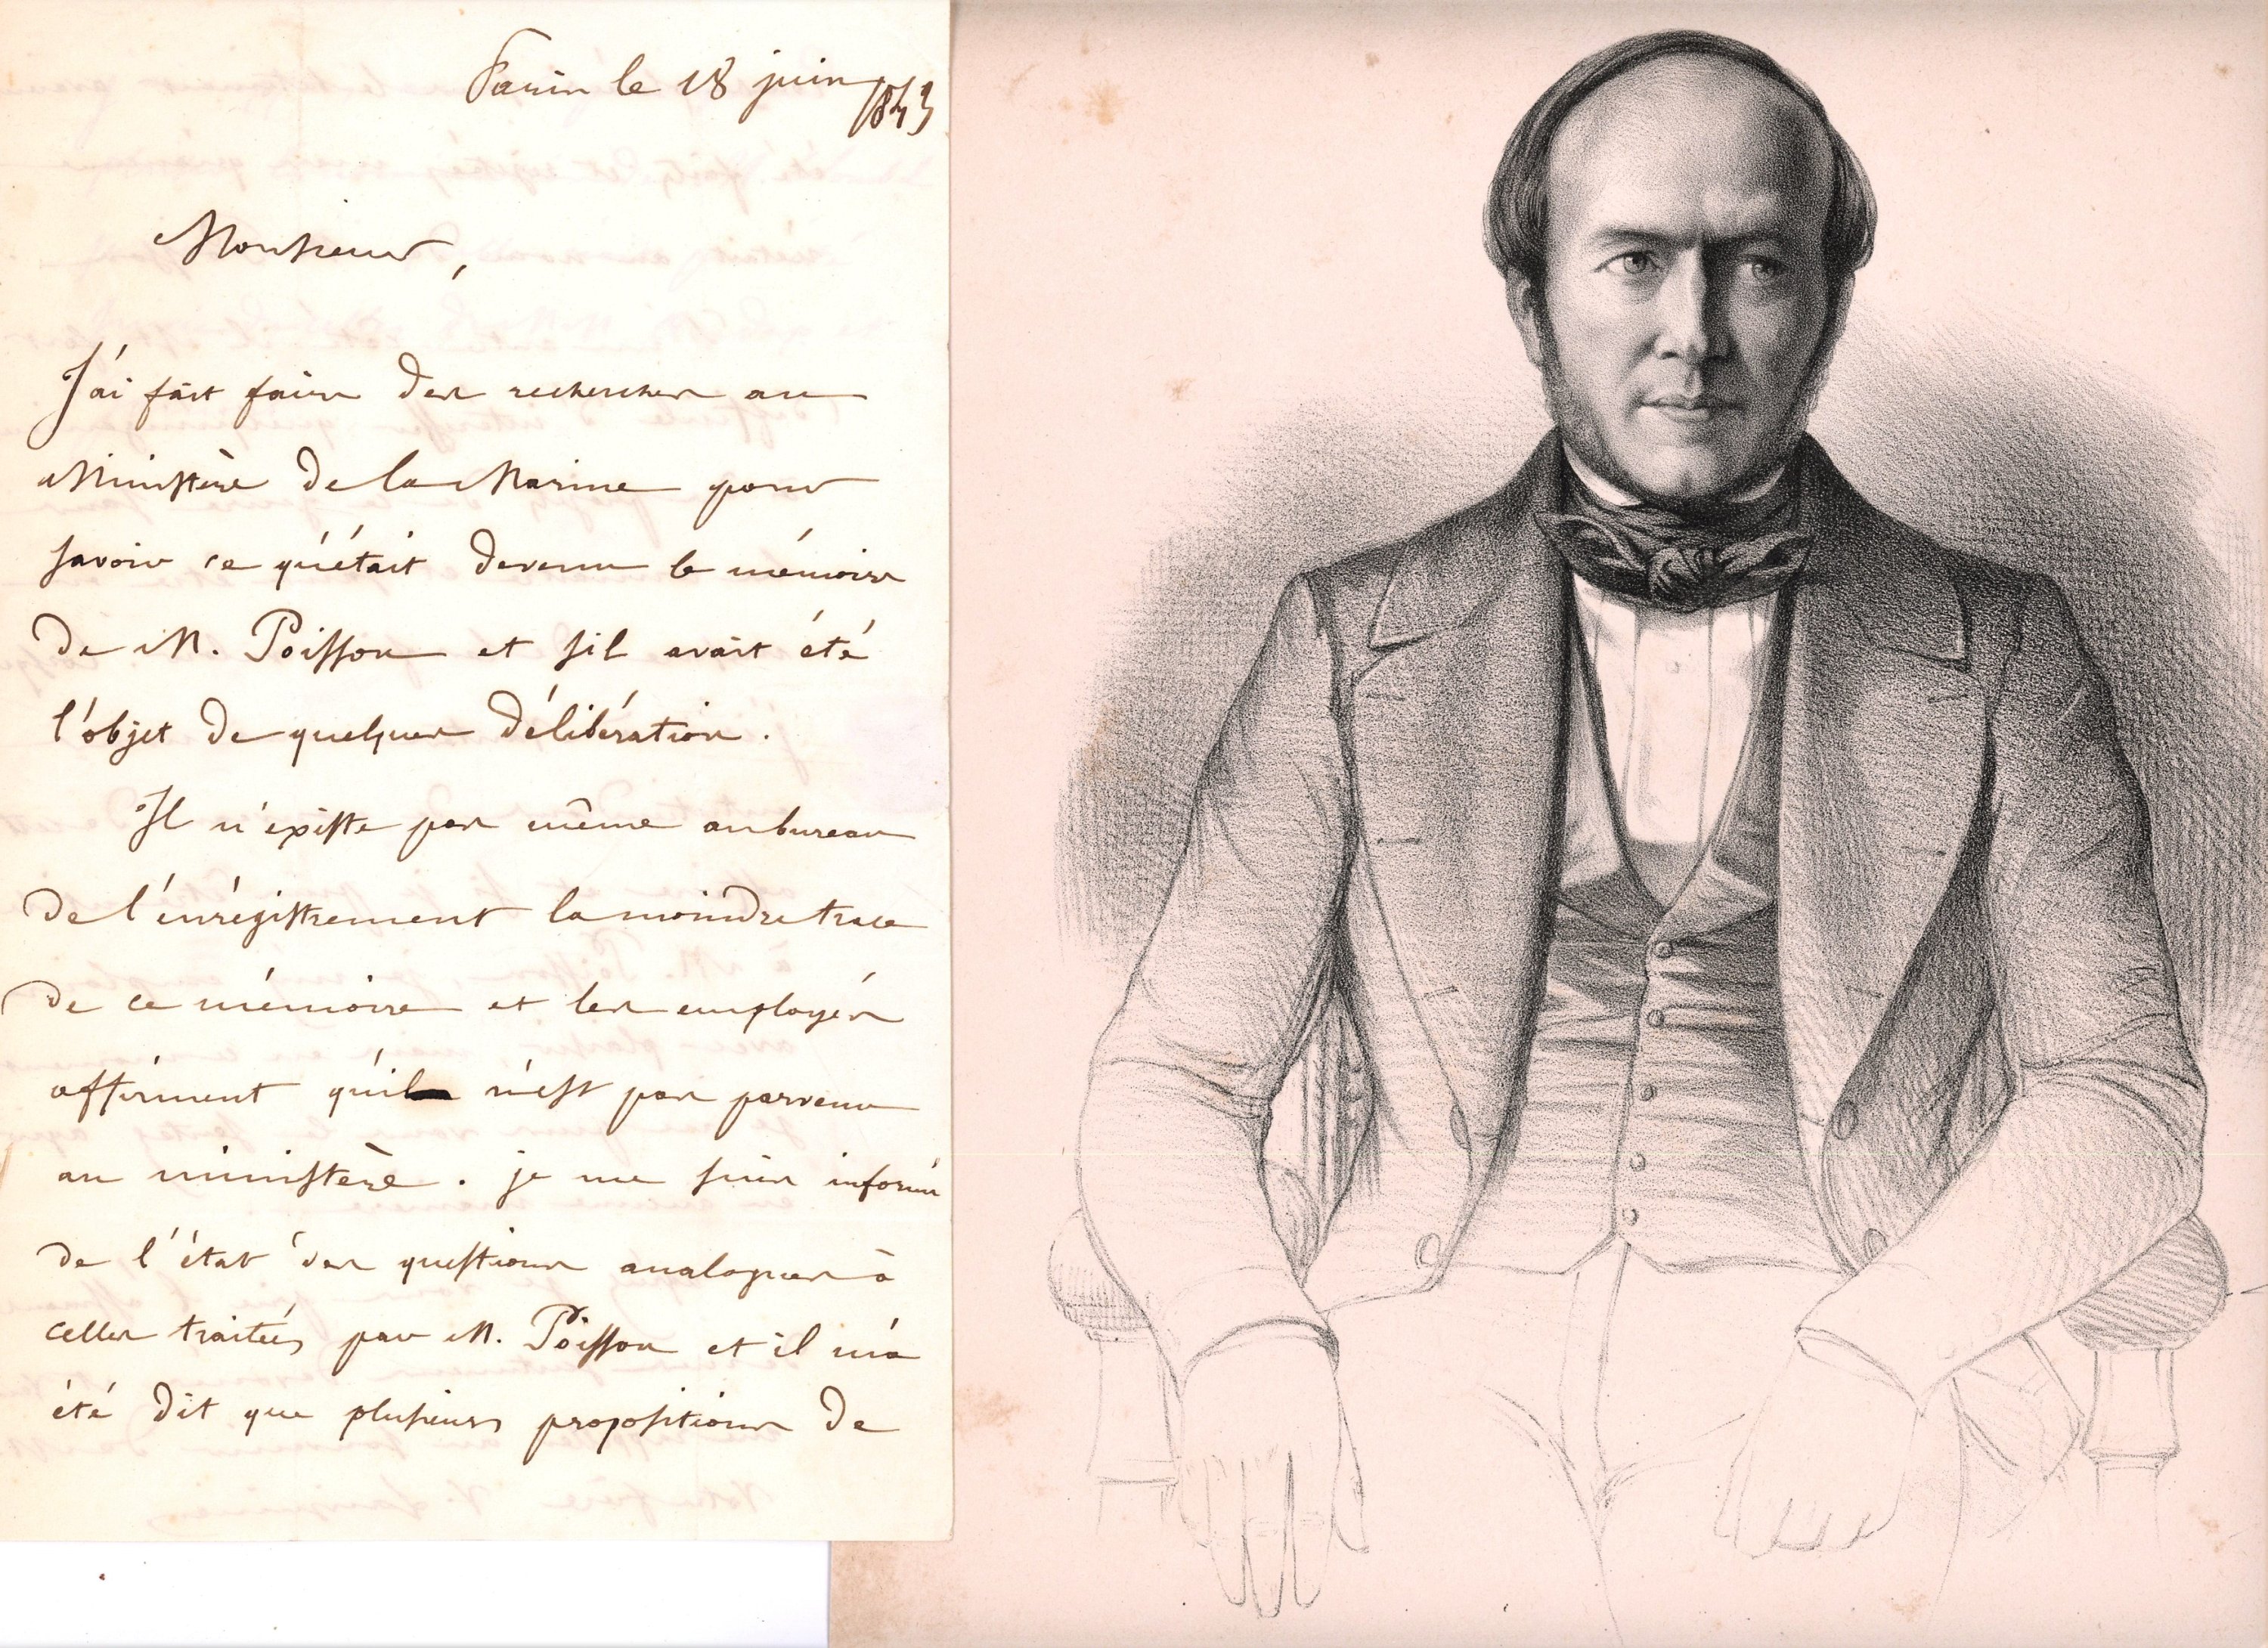 Paris le 18 juin 1843
Monsieur,
J'ai fait faire des recherches au
Ministère de la Marine pour
savoir ce qu'était devenu le mémoire
de M. Poisson et s'il avait été
l'objet de quelques délibération.
Il n'existe pas même au bureau
de l'enrégistrement la moindre trace
de ce mémoire et les employés
affirment qu'il n'est pas parvenu
au ministère. je me suis informé
de l'état des questions analogues à
celles traitées par M. Poisson et il m'a
été dit que plusieurs propositions de